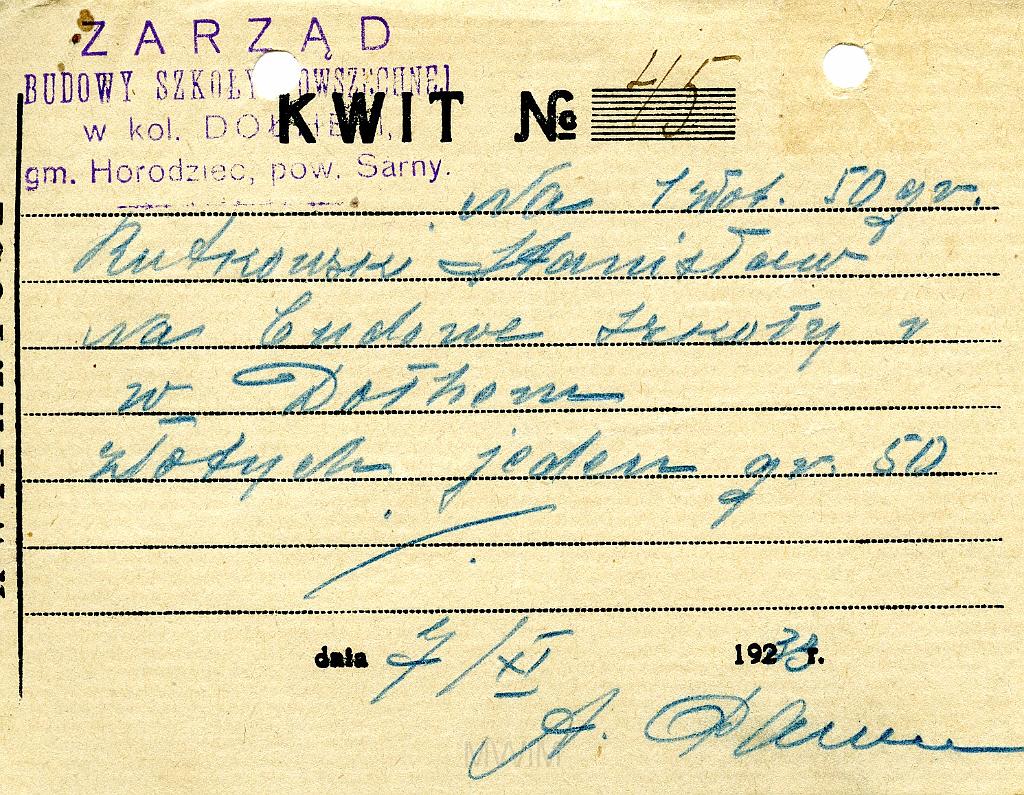 ZARZĄD
BUDOWY SZKOŁY POWSZECHNEJ
w kol.
gm. Horodziec, pow. Sarny.
KWIT № 45
Na 1 złot. 50 gr.
Rutkowski Stanisław
na budowe szkoły
w Dołhem
złotych jeden gr. 50
dnia 7/XI 192 r.
A.
MWIM